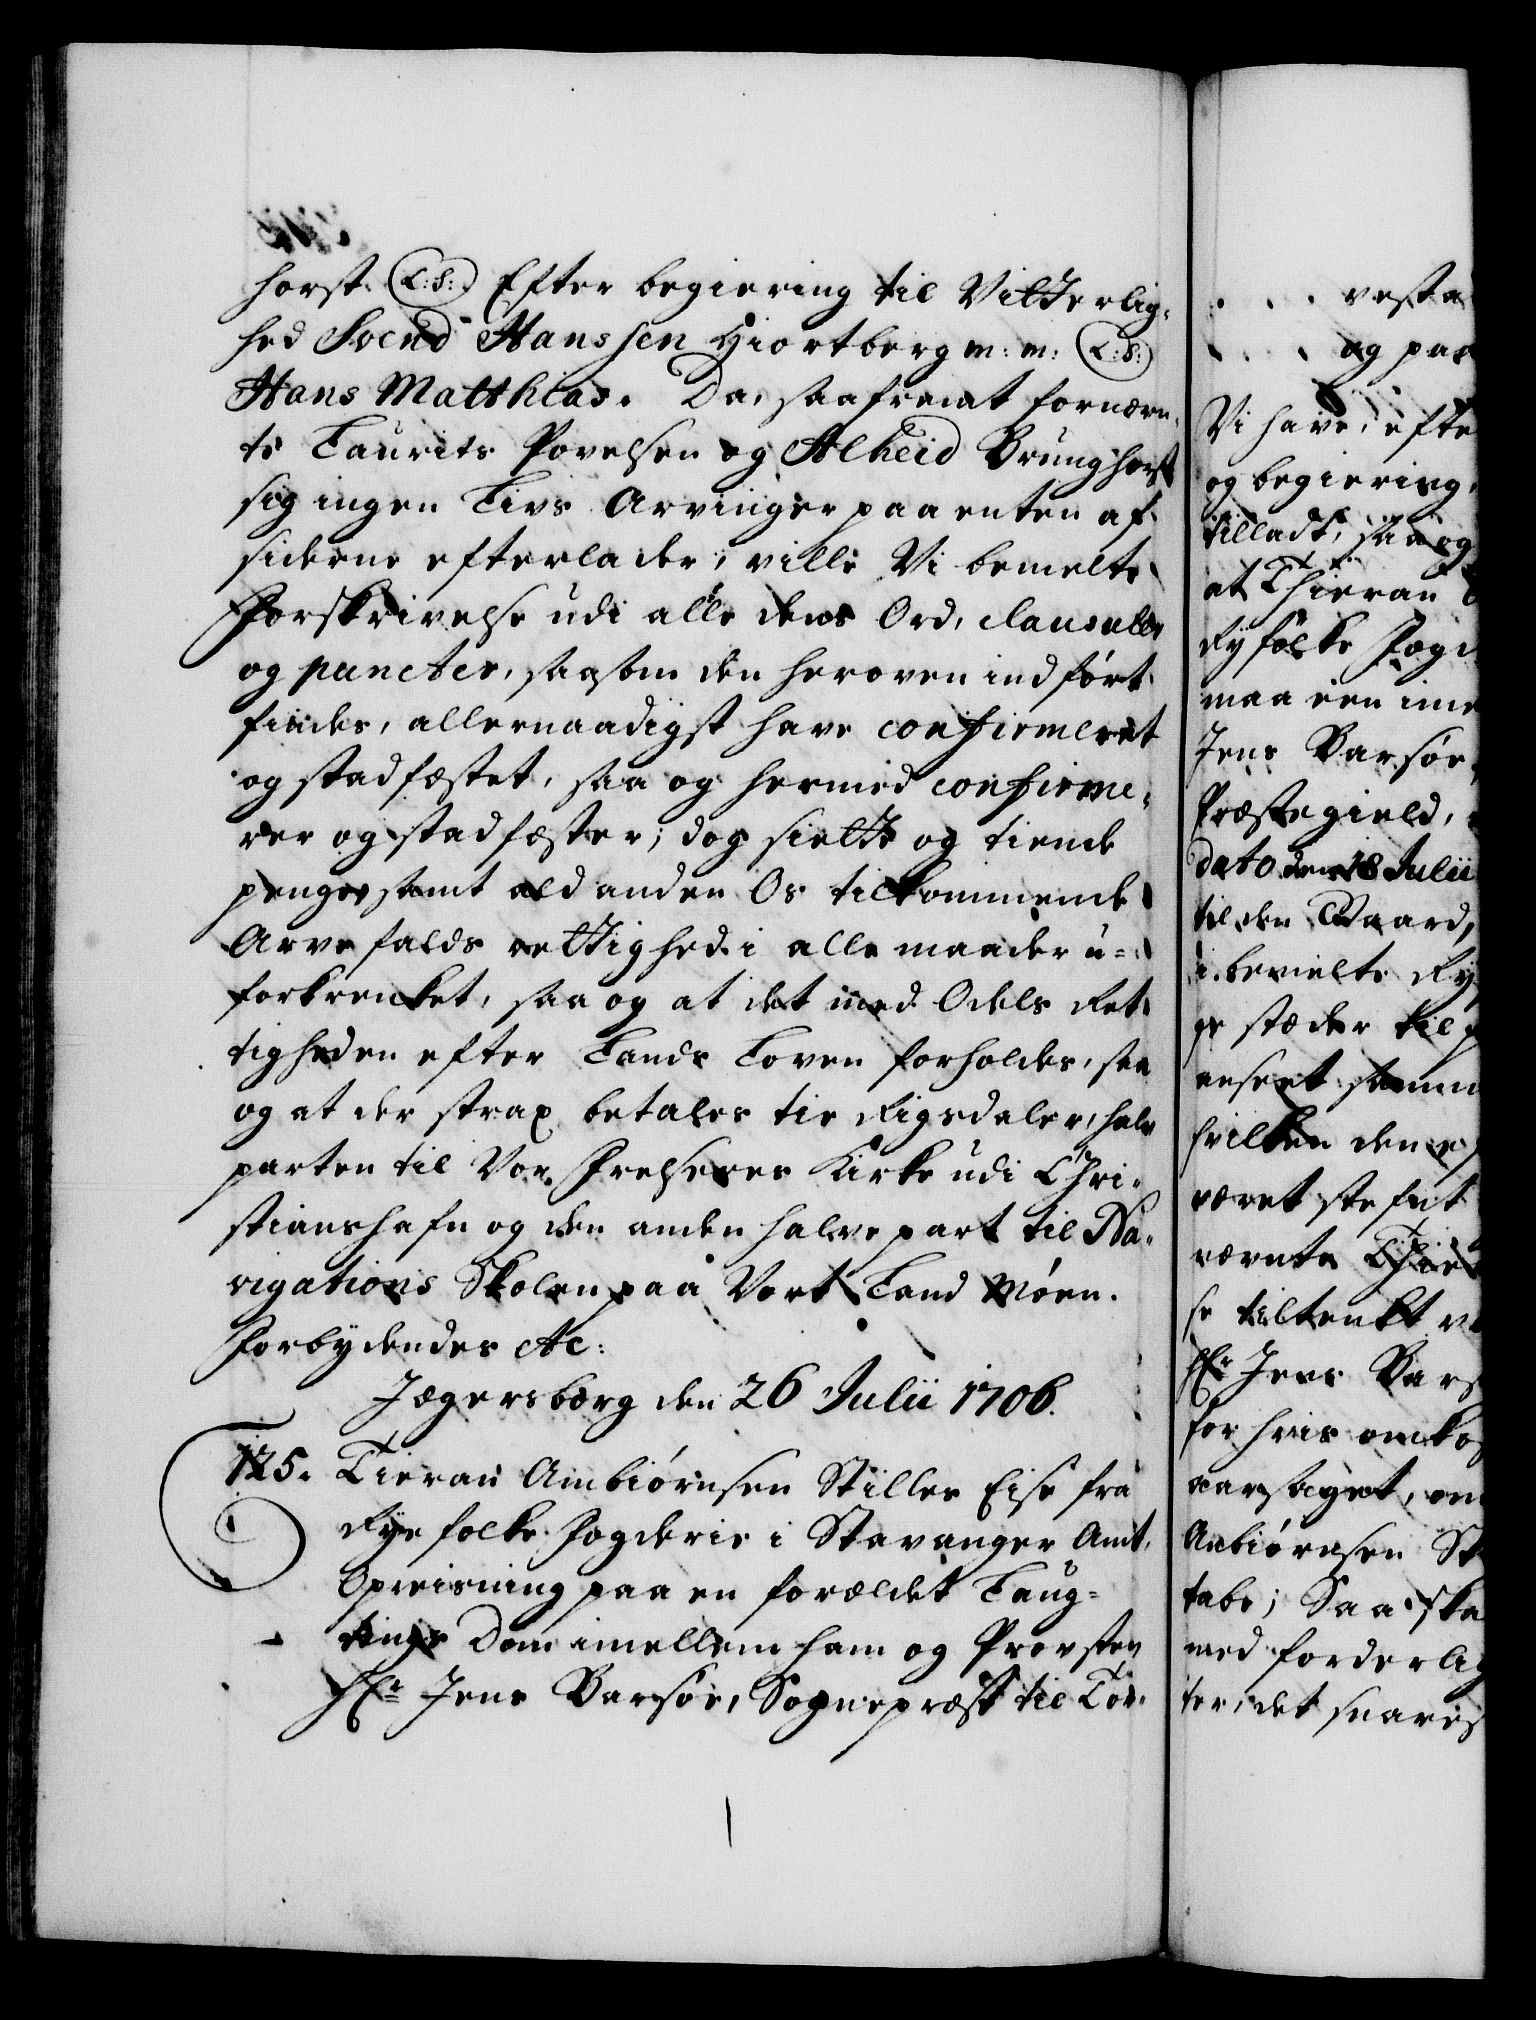 horst. (L:S:) Efter begiering til Vitterlig-
hed Svend Hanssen Hiortberg m: m: (L:S:)
Hans Matthias. Da, saafremt fornævn-
te Laurits Povelsen og Alheid Brunghorst
sig ingen Livs Arvinger paa enten af
siderne efterlader, ville Vi bemelte
Forskrivelse udi alle dens Ord, clausuler
og puncter, saasom den heroven indført
findes, allernaadigst have confirmeret
og stadfæstet, saa og hermed confirme-
rer og stadfæster; dog siette og tiende
penge samt ald anden Os tilkommende
Arve falds rettighed i alle maader u-
forkrenket, saa og at det med Odels Ret-
tigheden efter Lands Loven forholdes, saa
og at der strax betales tie Rigsdaler, halv
parten til Vor Frelseres Kirke udi Chri-
stianshafn og den anden halve part til Na-
vigations Skolen paa Vort Land Møen.
Forbydendes etc:
Jægersborg den 26 Julii 1706.
125. Tieran Ambiørnsen Stiller Eise fra
Rye folke Fogderie i Stavanger Amt,
Opreisning paa en forældet Laug-
tings Dom imellem ham og Provsten
Hr Jens Barsøe, Sognepræst til Tor-
vesta
og paa
Vi have, efte
og begiering,
tilladt, saa og
at Thieran
Ryfolke Fogd
maa een ime
Jens Barsøe,
Præstegield,
dato den 18 Julii
til den Gaard,
i bemelte Ry
ge stæder til
anseet samm
hvilken den e
været stefnt
nævnte Thie
se tiltenkt v
Hr Jens Bars
for hvis omko
aarsaget, om
Anbiørnsen St
tabe; Saa ska
med forderlig
ter, det snares